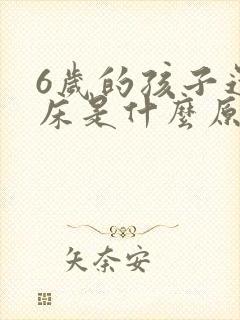 6歲的孩子
床是什麼原
矢奈安